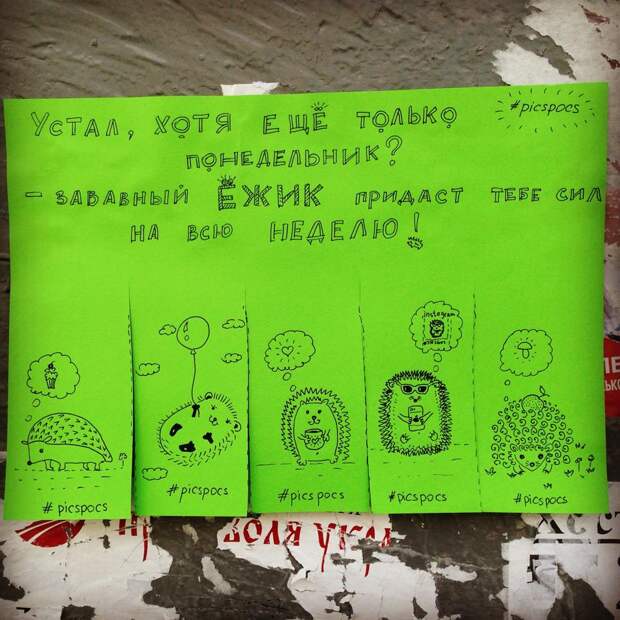 #picspocs
Устал, хотя ещё только
понедельник?
- забавный ЁЖИК придаст тебе сил
на всю НЕДЕЛЮ!
instagram
#picspocs
#picspocs
#picspocs
#picspocs
#picspocs